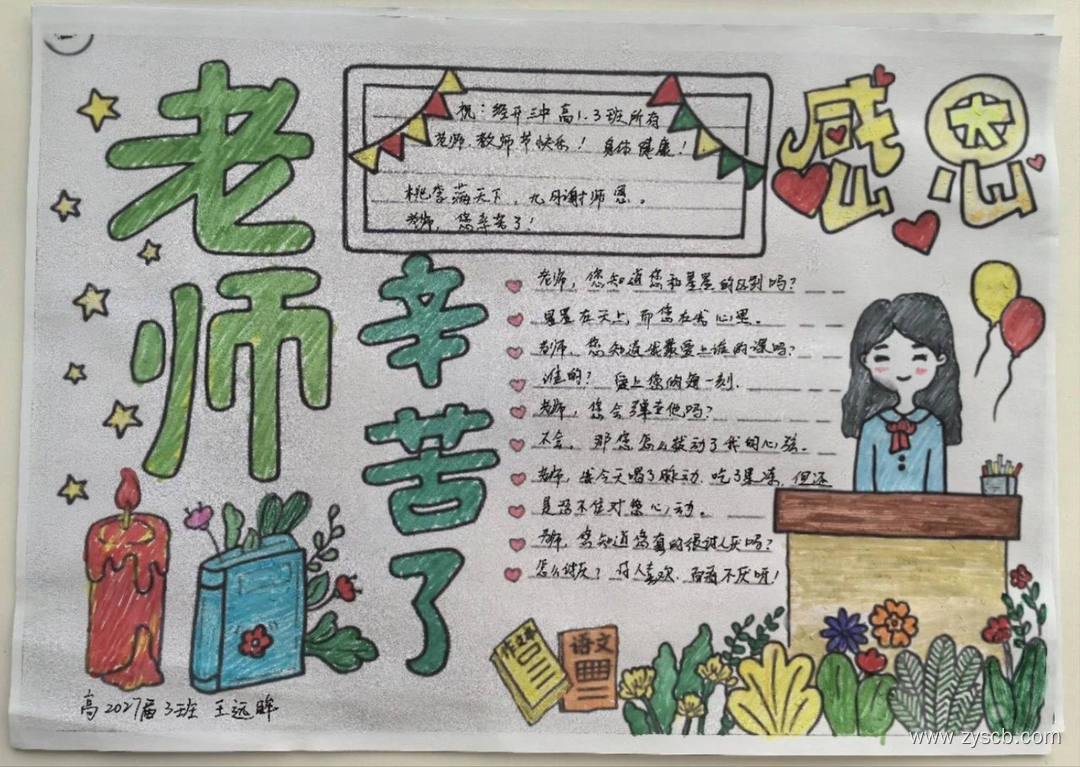 老师
辛苦了
感恩
祝：经开三中高1.3班所有
老师.教师节快乐！身体健康！
桃李满天下，九月谢师恩。
老师，您辛苦了！
老师，您知道您和星星的区别吗？
星星在天上，而您在我心里。
老师，您知道我最爱上谁的课吗？
谁的？爱上您的每一刻.
老师，您会弹吉他吗？
不会，那您怎么拨动了我的心弦。
老师，我今天喝了脉动.吃了果冻，但还
是忍不住对您心动。
老师，您知道您真的很讨人厌吗？
怎么讨厌？讨人喜欢.百看不厌呀！
语文
高2027届3班 王远晖
www.zyscb.com